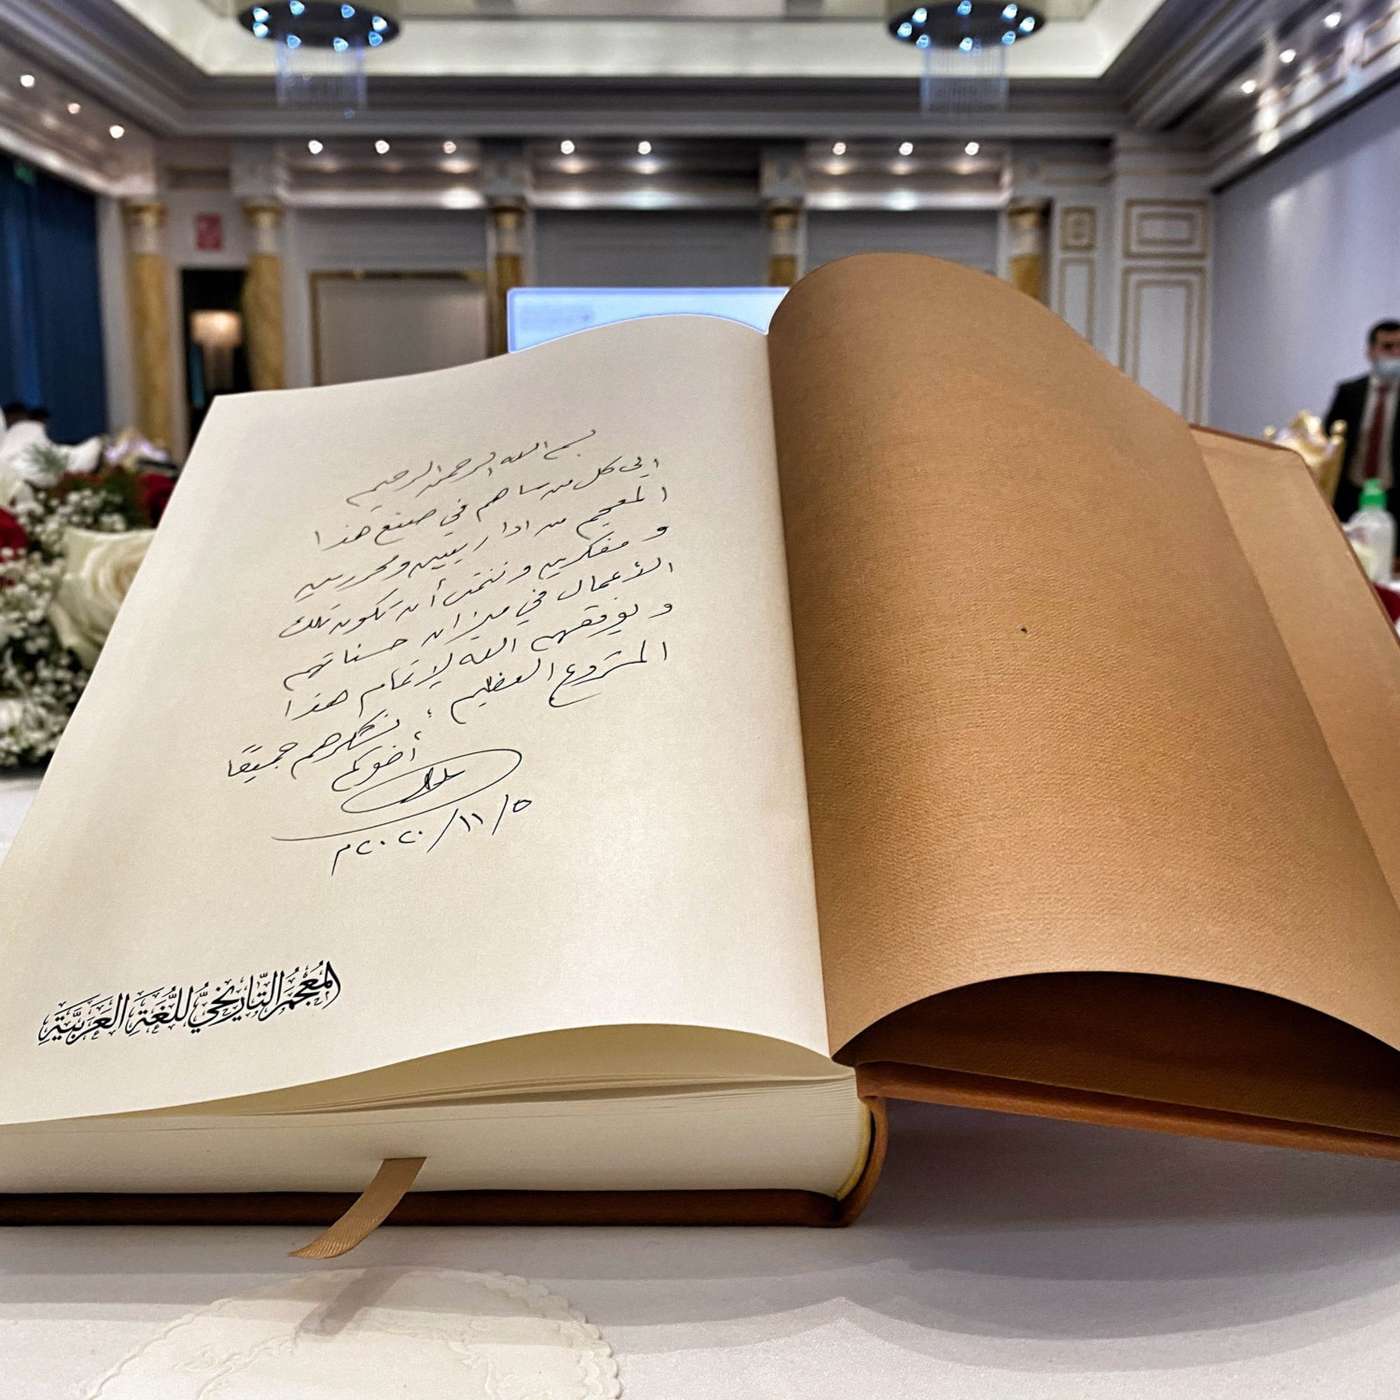 بسم الله الرحمن الرحيم
الى كل من ساهم في صنع هذا
المعجم من اداريين ومحررين
و مفكرين ونتمنى أن تكون تلك
الأعمال في ميزان حسناتهم
و يوفقهم الله لإتمام هذا
المشروع العظيم ، نشكرهم جميعًا
أخوكم
٥/١١/٢٠٢٠م
المُعْجَمُ التَّارِيخِيُّ لِلُّغَةِ العَرَبِيَّةِ